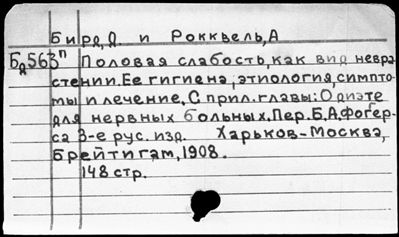 Бирд, Д. и Рокквель, А
Бд563п Половая слабость, как вид невра
стении. Ее гигиена, этиология, симпто-
мы и лечение, С прил. главы: О диэте
для нервных больных. Пер. Б.А. Фогер-
са 3-е рус. изд. Харьков-Москва,
Брейтигам, 1908.
148 стр.